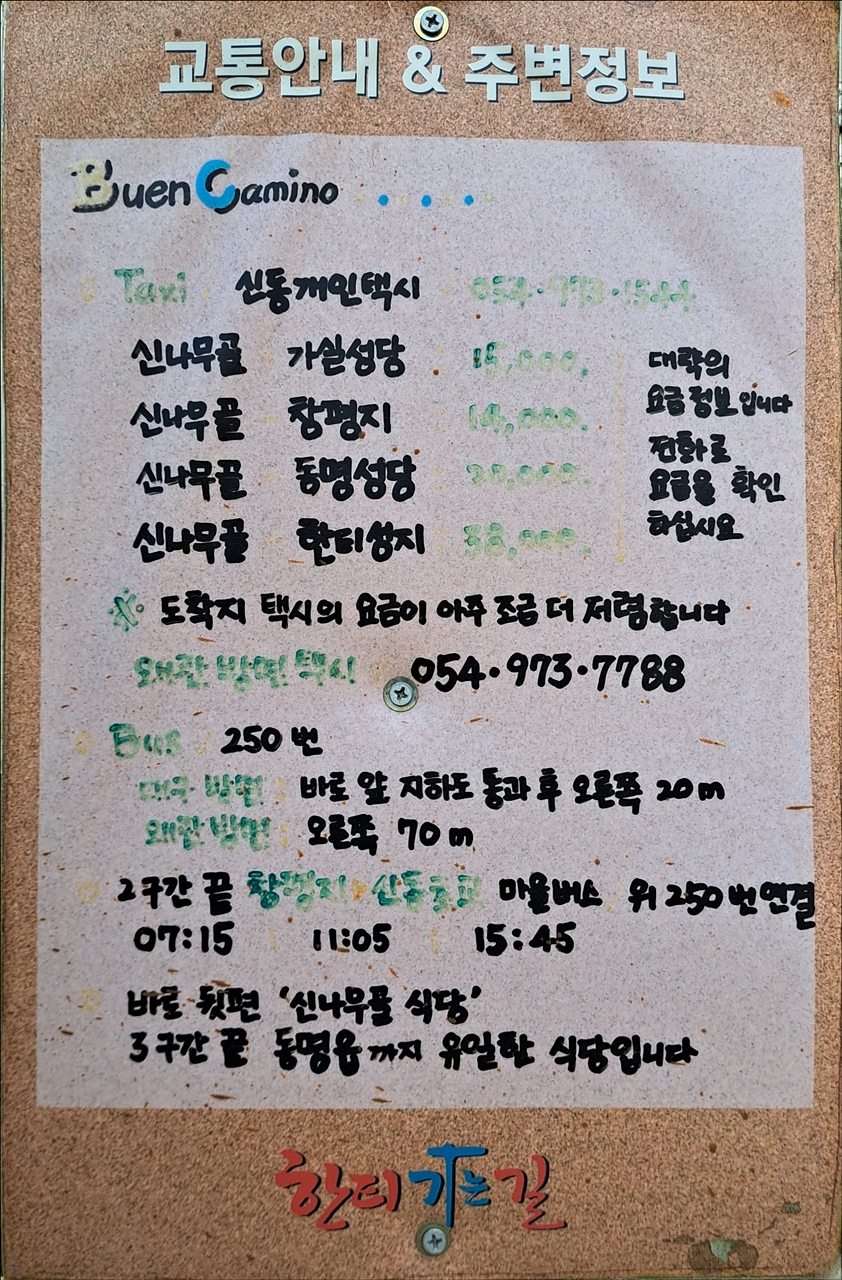 교통안내 & 주변정보
Buen Camino
Taxi 신동개인택시 054·973·1544
신나무골 가실성당 15,000.
신나무골 창평지 14,000.
신나무골 동명성당 20,000.
신나무골 한티성지 38,000.
대략의
요금정보입니다
전화로
요금을 확인
하십시요
※ 도착지 택시의 요금이 아주 조금 더 저렴합니다
왜관 방면 택시 054·973·7788
Bus / 250 번
대구 방면 : 바로 앞 지하도 통과 후 오른쪽 20m
왜관 방면 : 오른쪽 70m
2구간 끝 창평지 신동 마을버스 위 250번 연결
07:15 11:05 15:45
바로 뒷편 '신나무골 식당'
3구간 끝 동명읍까지 유일한 식당입니다
한티 가는 길